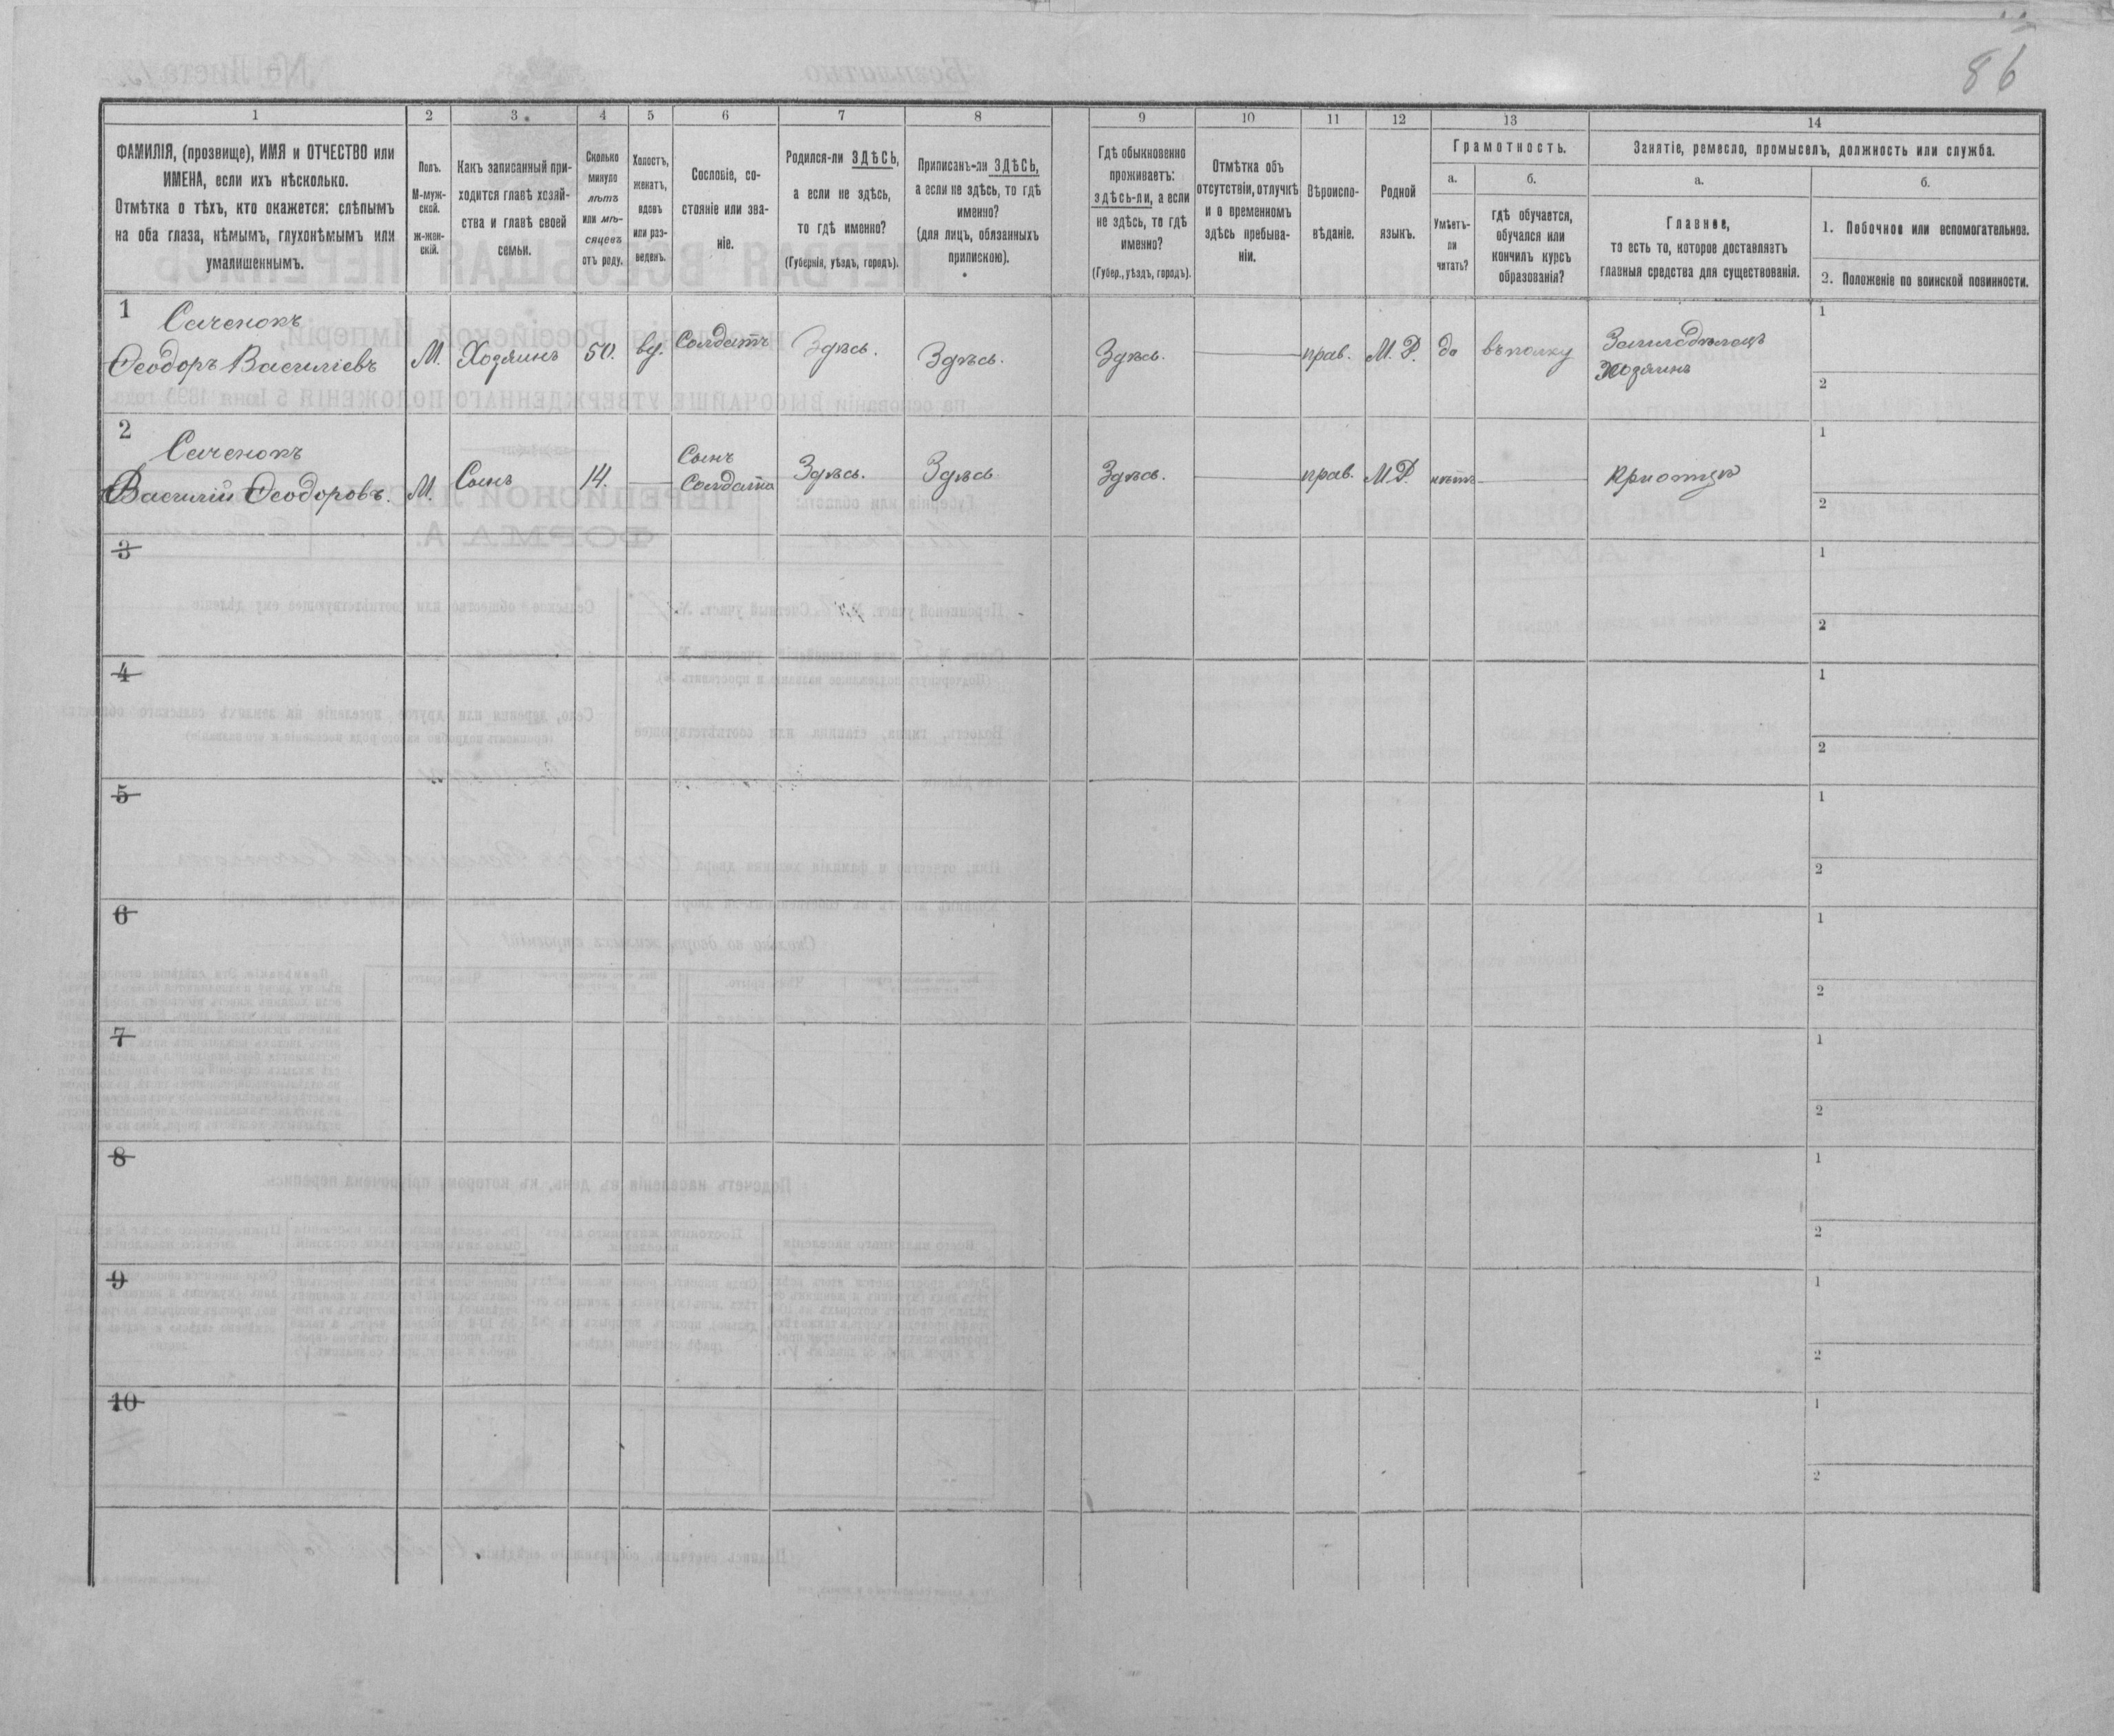 86
1
2
3
4
5
6
7
8
9
10
11
12
13
14
ФАМИЛІЯ, (прозвище), ИМЯ и ОТЧЕСТВО или
ИМЕНА, если ихъ нѣсколько.
Отмѣтка о тѣхъ, кто окажется: слѣпымъ
на оба глаза, нѣмымъ, глухонѣмымъ или
умалишеннымъ.
Полъ.
М-муж-
ской.
ж-жен-
скій.
Какъ записанный при-
ходится главѣ хозяй-
ства и главѣ своей
семьи.
Сколько
минуло
лѣтъ
или мѣ-
сяцевъ
отъ роду.
Холостъ,
женатъ,
вдовъ
или раз-
веденъ.
Сословіе, со-
стояніе или зва-
ніе.
Родился-ли ЗДѢСЬ,
а если не здѣсь,
то гдѣ именно?
(Губернія, уѣздъ, городъ).
Приписанъ-ли ЗДѢСЬ,
а если не здѣсь, то гдѣ
именно?
(для лицъ, обязанныхъ
припискою).
Гдѣ обыкновенно
проживаетъ:
здѣсь-ли, а если
не здѣсь, то гдѣ
именно?
(Губер., уѣздъ, городъ).
Отмѣтка объ
отсутствіи, отлучкѣ
и о временномъ
здѣсь пребыва-
ніи.
Вѣроиспо-
вѣданіе.
Родной
языкъ.
Грамотность.
а.
Умѣетъ-
ли
читать?
б.
гдѣ обучается,
обучался или
кончилъ курсъ
образованія?
Занятіе, ремесло, промыселъ, должность или служба.
а.
Главное,
то есть то, которое доставляетъ
главныя средства для существованія.
б.
1. Побочное или вспомогательное.
2. Положеніе по воинской повинности.
1
Саченокъ
Ѳеодоръ Василіевъ
М.
Хозяинъ
50.
вд.
Солдатъ
Здѣсь.
Здѣсь.
Здѣсь.
прав.
М. Р.
да
въ полку
Хозяинъ
1
2
2
Саченокъ
Василій Ѳеодоровъ.
М.
Сынъ
14.
Сынъ
Солдата
Здѣсь.
Здѣсь
Здѣсь.
прав.
М Р.
нѣтъ
При отцѣ
1
2
3
1
2
4
1
2
5
1
2
6
1
2
7
1
2
8
1
2
9
1
2
10
1
2